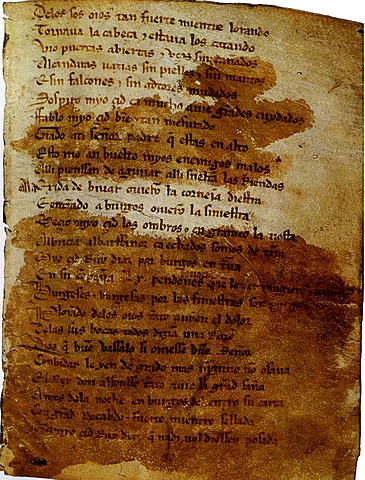 Delos sos oios tan fuerte mientre lorando
Tornaua la cabeça ⁊ estaua los catando
Vio puertas abiertas ⁊ vços sin cañados
Alcandaras uazias sin pielles ⁊ sin mantos
E sin falcones ⁊ sin adtores mudados
Sospiro myo çid ca mucho auie grandes cuydados
Fablo myo çid bien ⁊ tan mesurado
Grado ati señor padre q̃ estas en alto
Esto me an buelto myos enemigos malos
Alli pienssan de aguijar alli sueltan las Riendas
Ala Exida de biuar ouierõ la corneja diestra
Entrando a burgos ouierõ la siniestra
Meçio myo çid los ombros ⁊ en grameo la tiesta
Albricia albarffanez ca echados somos de tierra
Myo çid Ruy diaz por burgos en traua
En su conpaña .Lx. pendones
Burgeses ⁊ burgesas por las finiestras son
Plorando delos oios tãto auyen el dolor
Delas sus bocas todos dizian una Razõ
Dios q̃ buẽ vassalo si ouiesse buẽ Señor
Conbidar le yen de grado mas ninguno no osaua
El Rey don alfonsso tãto auie la grãd saña
Antes dela noche en burgos del entro su carta
Con grãd Recabdo ⁊ fuerte mientre sellada
myo çid Ruy diaz q̃ nadi nol diessen posada